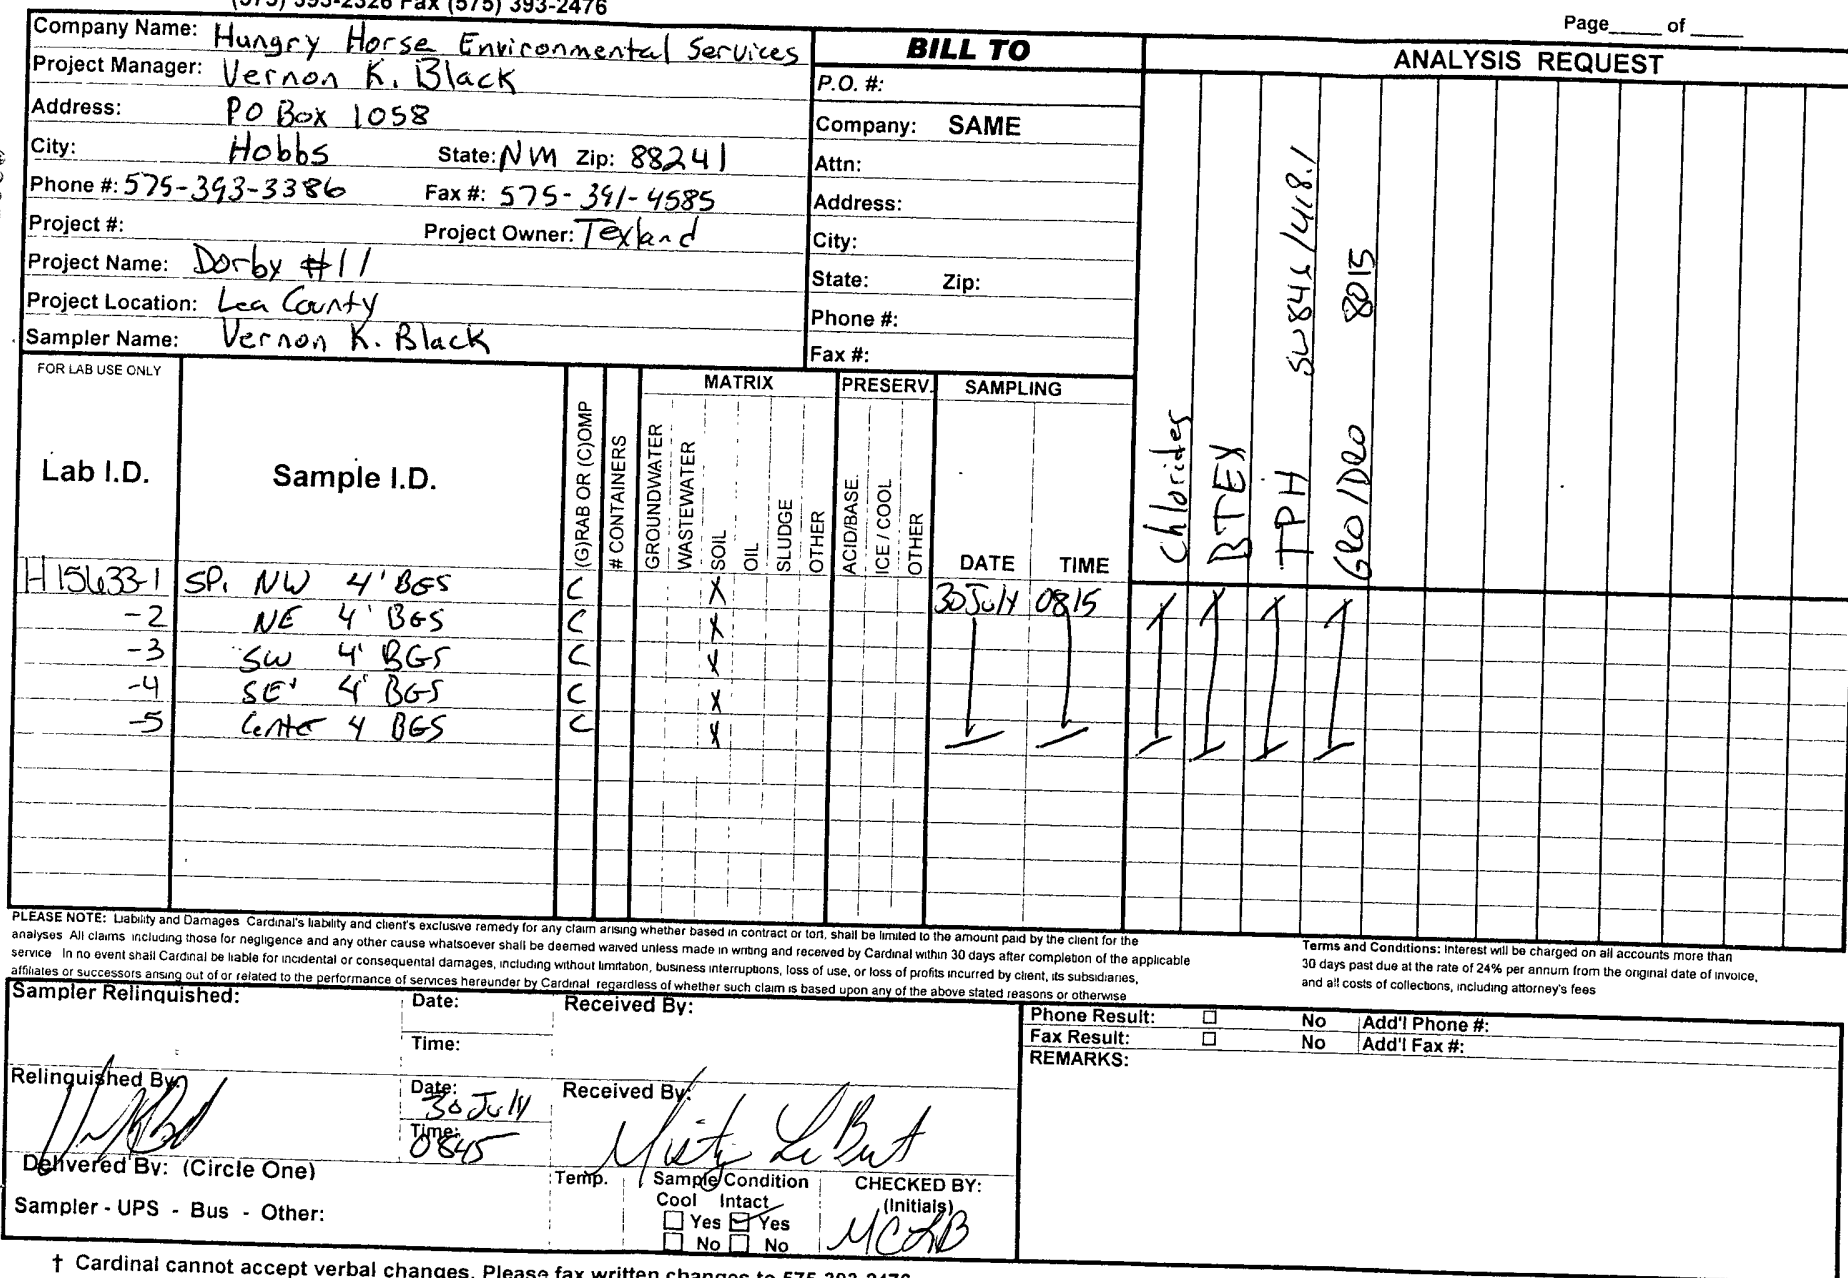 (575) 393-2326 Fax (575) 393-2476
Page_____ of _____
Company Name: Hungry Horse Environmental Services
BILL TO
ANALYSIS REQUEST
Project Manager: Vernon K. Black
P.O. #:
Address: PO Box 1058
Company: SAME
City: Hobbs State: NM Zip: 88241
Attn:
Phone #: 575-393-3386 Fax #: 575-391-4585
Address:
Project #: Project Owner: Texland
City:
Project Name: Dorby #11
State: Zip:
Project Location: Lea County
Phone #:
Sampler Name: Vernon K. Black
Fax #:
Chlorides
BTEX
TPH SW846/418.1
GRO/DRO 8015
FOR LAB USE ONLY
MATRIX PRESERV. SAMPLING
Lab I.D. Sample I.D. (G)RAB OR (C)OMP # CONTAINERS GROUNDWATER WASTEWATER SOIL OIL SLUDGE OTHER ACID/BASE. ICE / COOL OTHER DATE TIME
H15633-1 SP. NW 4' BGS C X 30 July 0815 X X X X
-2 NE 4' BGS C X
-3 SW 4' BGS C X
-4 SE 4' BGS C X
-5 Center 4 BGS C X
PLEASE NOTE: Liability and Damages Cardinal's liability and client's exclusive remedy for any claim arising whether based in contract or tort, shall be limited to the amount paid by the client for the
analyses All claims including those for negligence and any other cause whatsoever shall be deemed waived unless made in writing and received by Cardinal within 30 days after completion of the applicable
service In no event shall Cardinal be liable for incidental or consequental damages, including without limitation, business interruptions, loss of use, or loss of profits incurred by client, its subsidiaries,
affiliates or successors arising out of or related to the performance of services hereunder by Cardinal regardless of whether such claim is based upon any of the above stated reasons or otherwise
Terms and Conditions: Interest will be charged on all accounts more than
30 days past due at the rate of 24% per annum from the original date of invoice,
and all costs of collections, including attorney's fees
Sampler Relinquished: Date: Received By:
Time:
Phone Result: No Add'l Phone #:
Fax Result: No Add'l Fax #:
REMARKS:
Relinquished By: Date: 30 July Received By:
Time: 0845
Misty LeBert
Delivered By: (Circle One)
Temp. Sample Condition CHECKED BY:
Cool Intact (Initials)
Sampler - UPS - Bus - Other:
Yes Yes
No No
MCLB
† Cardinal cannot accept verbal changes. Please fax written changes to 575-393-2476